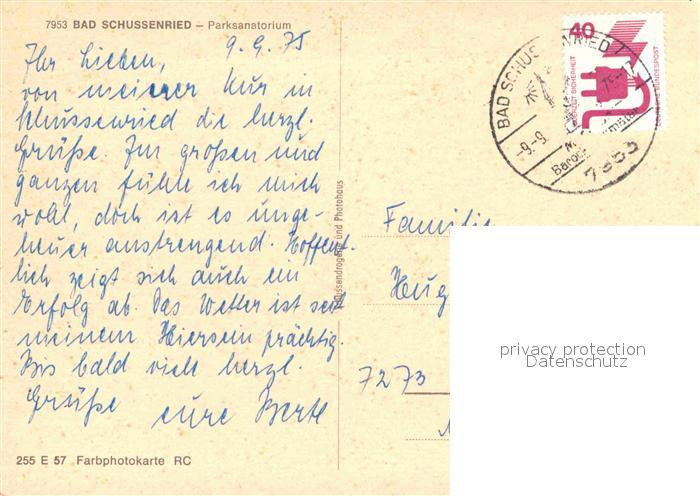 7953 BAD SCHUSSENRIED – Parksanatorium
9.9.75
Ihr Lieben,
von meiner Kur in
Schussenried die herzl.
Grüße. Im großen und
ganzen fühle ich mich
wohl, doch ist es unge-
heuer anstrengend. Hoffent-
lich zeigt sich auch ein
Erfolg ab. Das Wetter ist seit
meinem Hiersein prächtig.
Bis bald viele herzl.
Grüße eure Berte
255 E 57 Farbphotokarte RC
Schussendrogerie und Photohaus
40
DEUTSCHE BUNDESPOST
BAD SCHUSSENRIED 1
-9.-9.
7953
Familie
Hug
7273
privacy protection
Datenschutz